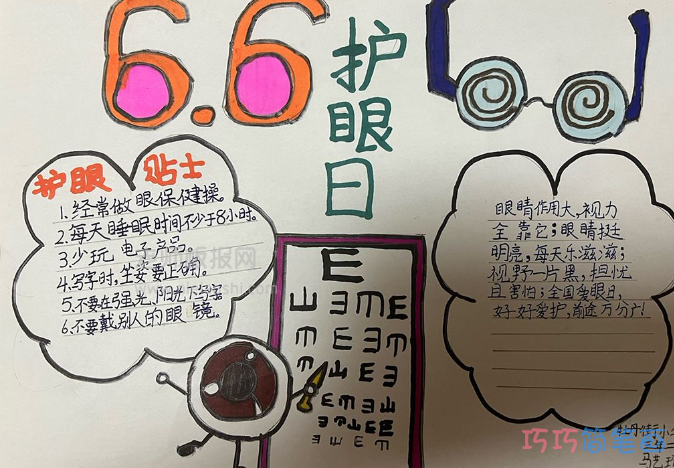 6.6
护眼日
护眼 贴士
1.经常做眼保健操。
2.每天睡眠时间不少于8小时。
3.少玩电子产品。
4.写字时,坐姿要正确。
5.不要在强光、阳光下写字。
6.不要戴别人的眼镜。
眼睛作用大,视力
全靠它;眼睛挺
明亮,每天乐滋滋;
视野一片黑,担忧
且害怕;全国爱眼日,
好好爱护,前途万分广!
E
E E M E
巧巧简笔画